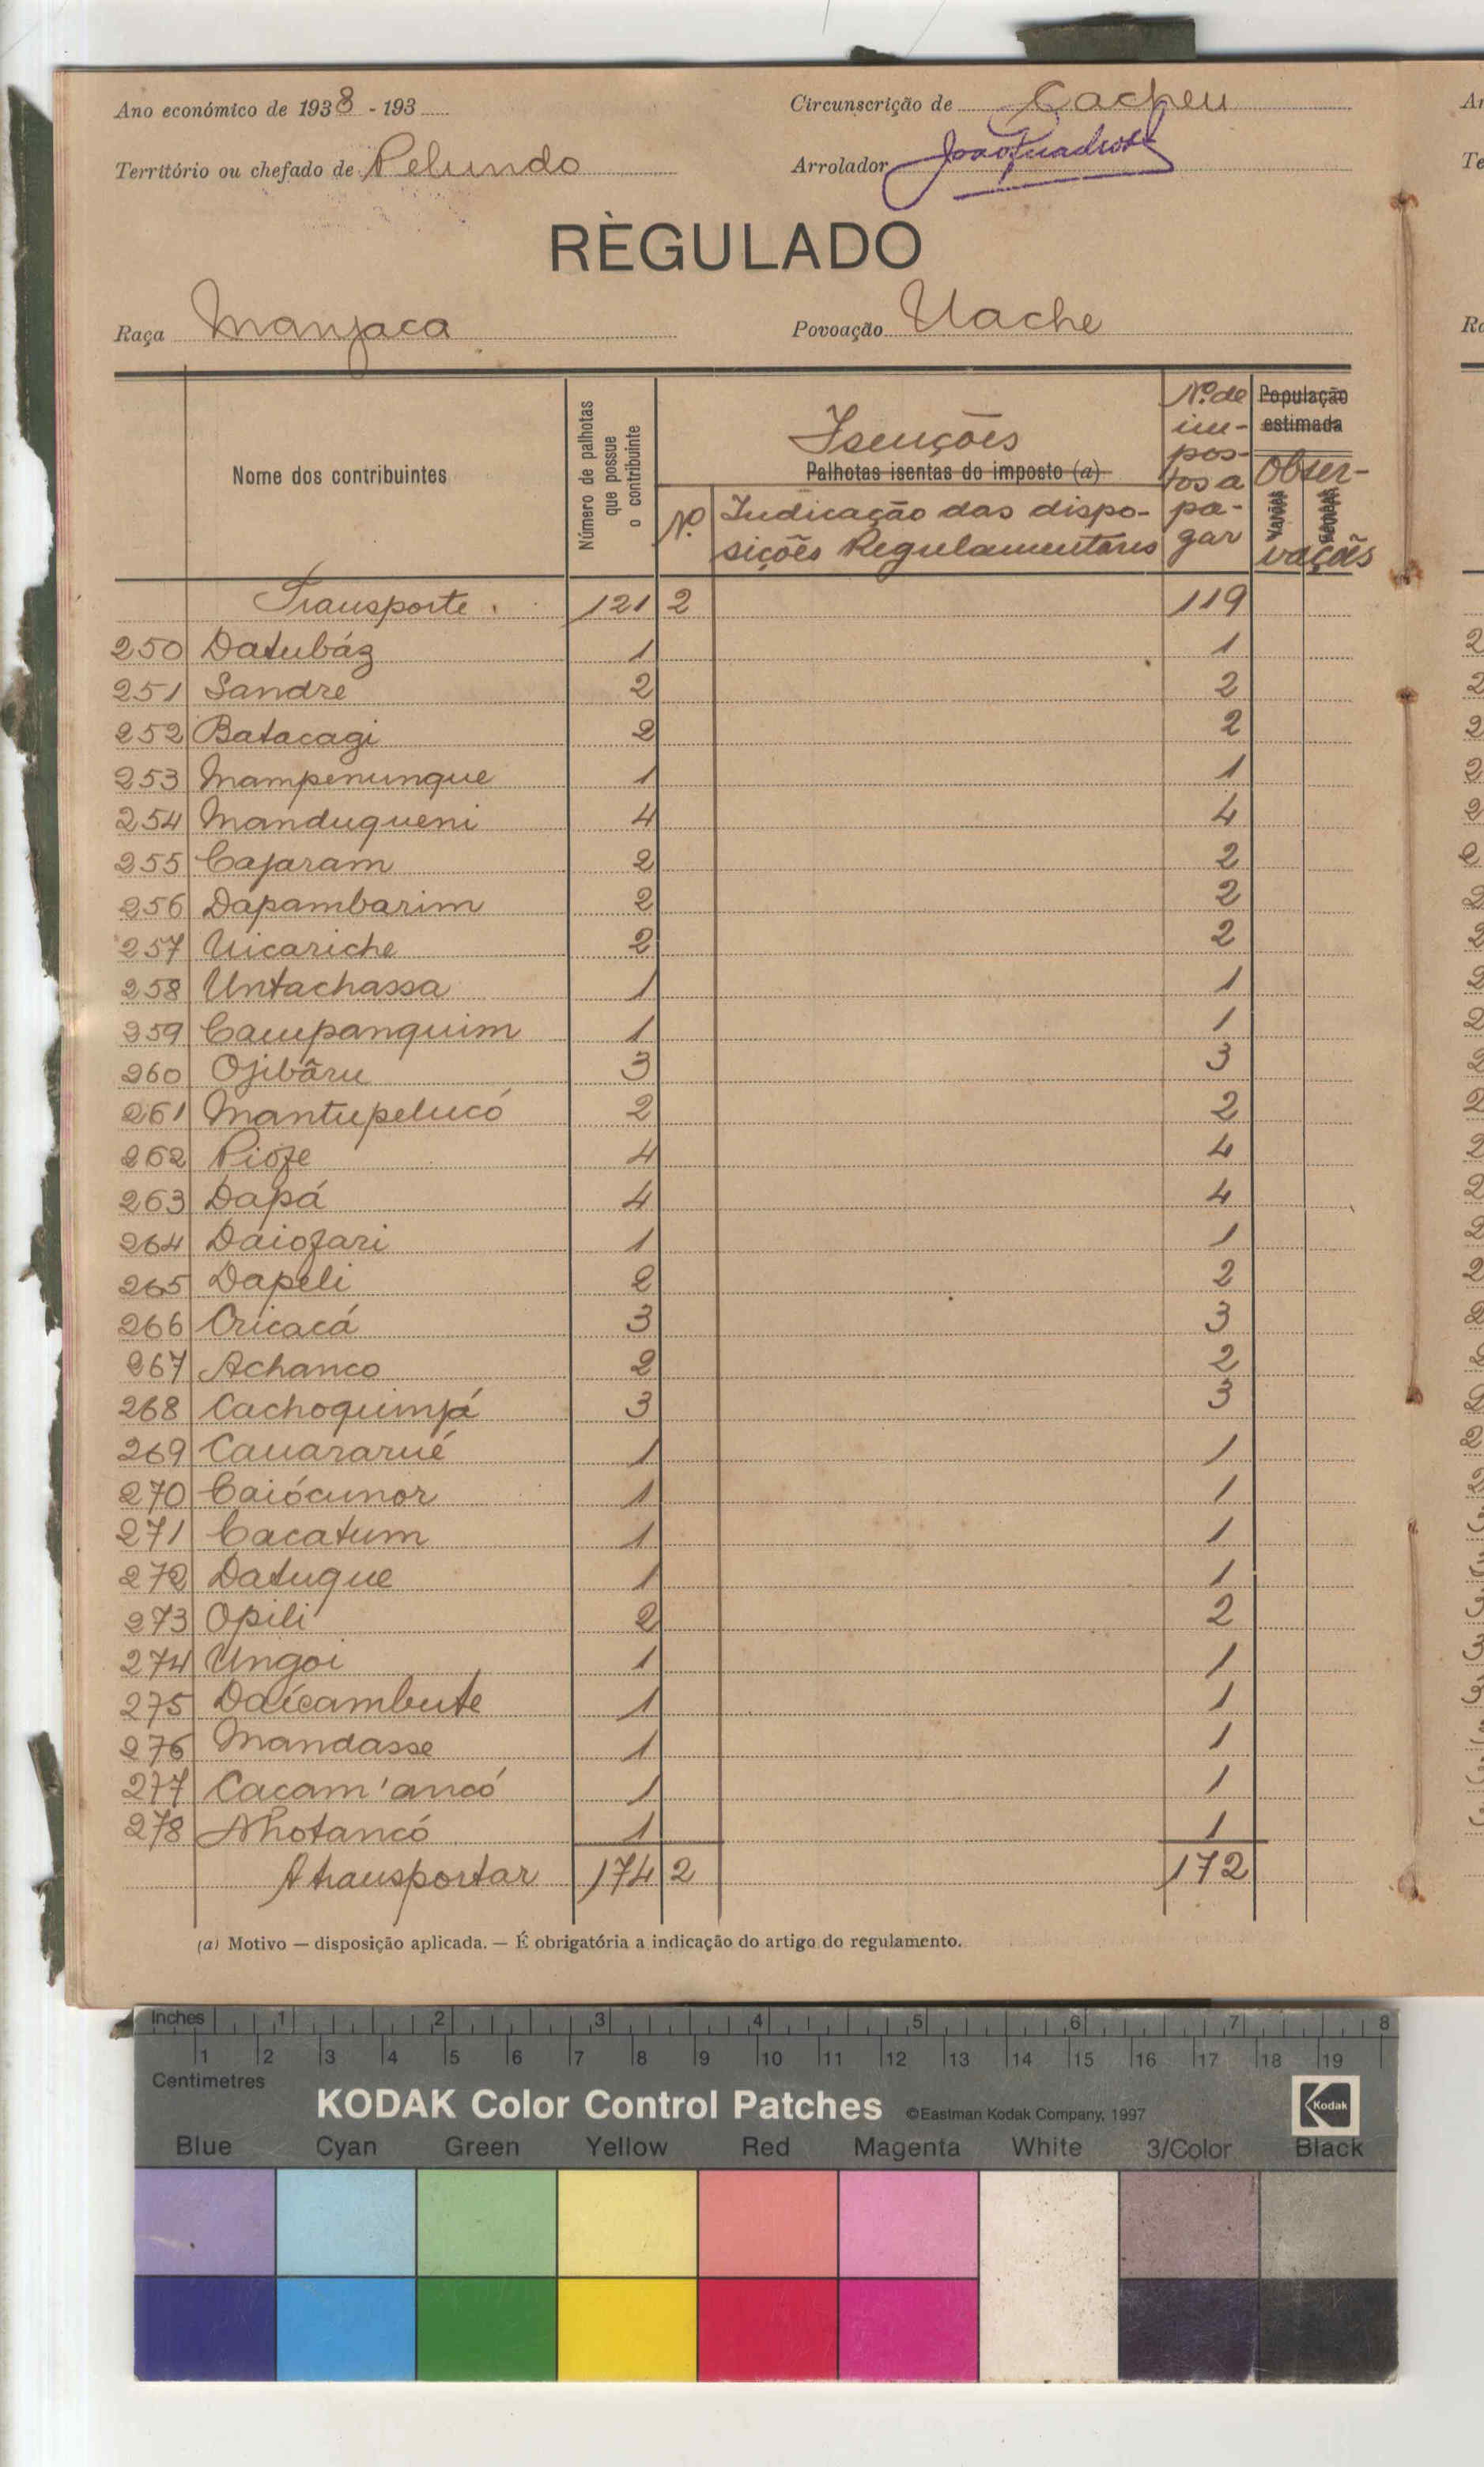 Ano económico de 1938 - 193
Circunscrição de Cacheu
Território ou chefado de Pelundo
Arrolador
RÈGULADO
Raça Manjaca
Povoação Uache
Nome dos contribuintes
Número de palhotas que possue o contribuinte
Isenções
Palhotas isentas do imposto (a)
Nº
Indicação das dispo-
sições Regulamentares
Nº de im-pos-tos a pa-gar
População estimada
Obser-vações
Varões
Fêmeas
Transporte . 121 2 119
250 Datubáz 1 1
251 Sandre 2 2
252 Batacagi 2 2
253 Mampenunque 1 1
254 Manduqueni 4 4
255 Cajaram 2 2
256 Dapambarim 2 2
257 Uicariche 2 2
258 Untachassa 1 1
259 Campanquim 1 1
260 Ojibãru 3 3
261 Mantupelucó 2 2
262 Pioze 4 4
263 Dapá 4 4
264 Daiofari 1 1
265 Dapeli 2 2
266 Oricacá 3 3
267 Achanco 2 2
268 Cachoquinjá 3 3
269 Cauararué 1 1
270 Caiócunor 1 1
271 Cacatum 1 1
272 Datuque 1 1
273 Opili 2 2
274 Ungoi 1 1
275 Daícambute 1 1
276 Mandasse 1 1
277 Cacam'ancó 1 1
278 Nhotancó 1 1
A transportar 174 2 172
(a) Motivo — disposição aplicada. — É obrigatória a indicação do artigo do regulamento.
Inches 1 2 3 4 5 6 7 8
1 2 3 4 5 6 7 8 9 10 11 12 13 14 15 16 17 18 19
Centimetres
KODAK Color Control Patches ©Eastman Kodak Company, 1997 Kodak
Blue Cyan Green Yellow Red Magenta White 3/Color Black